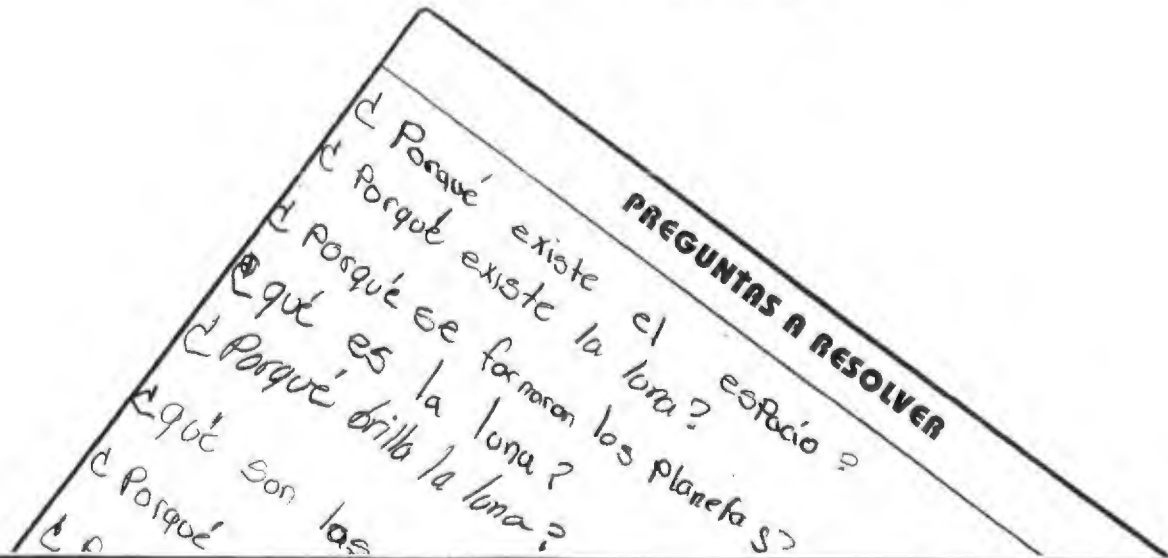 PREGUNTAS A RESOLVER
¿Porqué existe el espacio?
¿Porqué existe la luna?
¿Porqué se formaron los planetas?
¿qué es la luna?
¿Porqué brilla la luna?
¿qué son las
¿Porqué
¿P